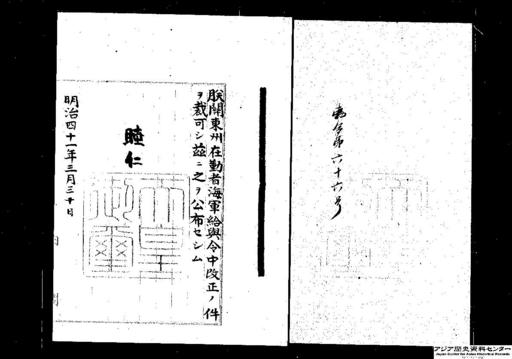 勅令第六十六号
朕關東州在勤者海軍給與令中改正ノ件
ヲ裁可シ茲ニ之ヲ公布セシム
睦仁
天皇御璽
明治四十一年三月三十日
アジア歴史資料センター
Japan Center for Asian Historical Records